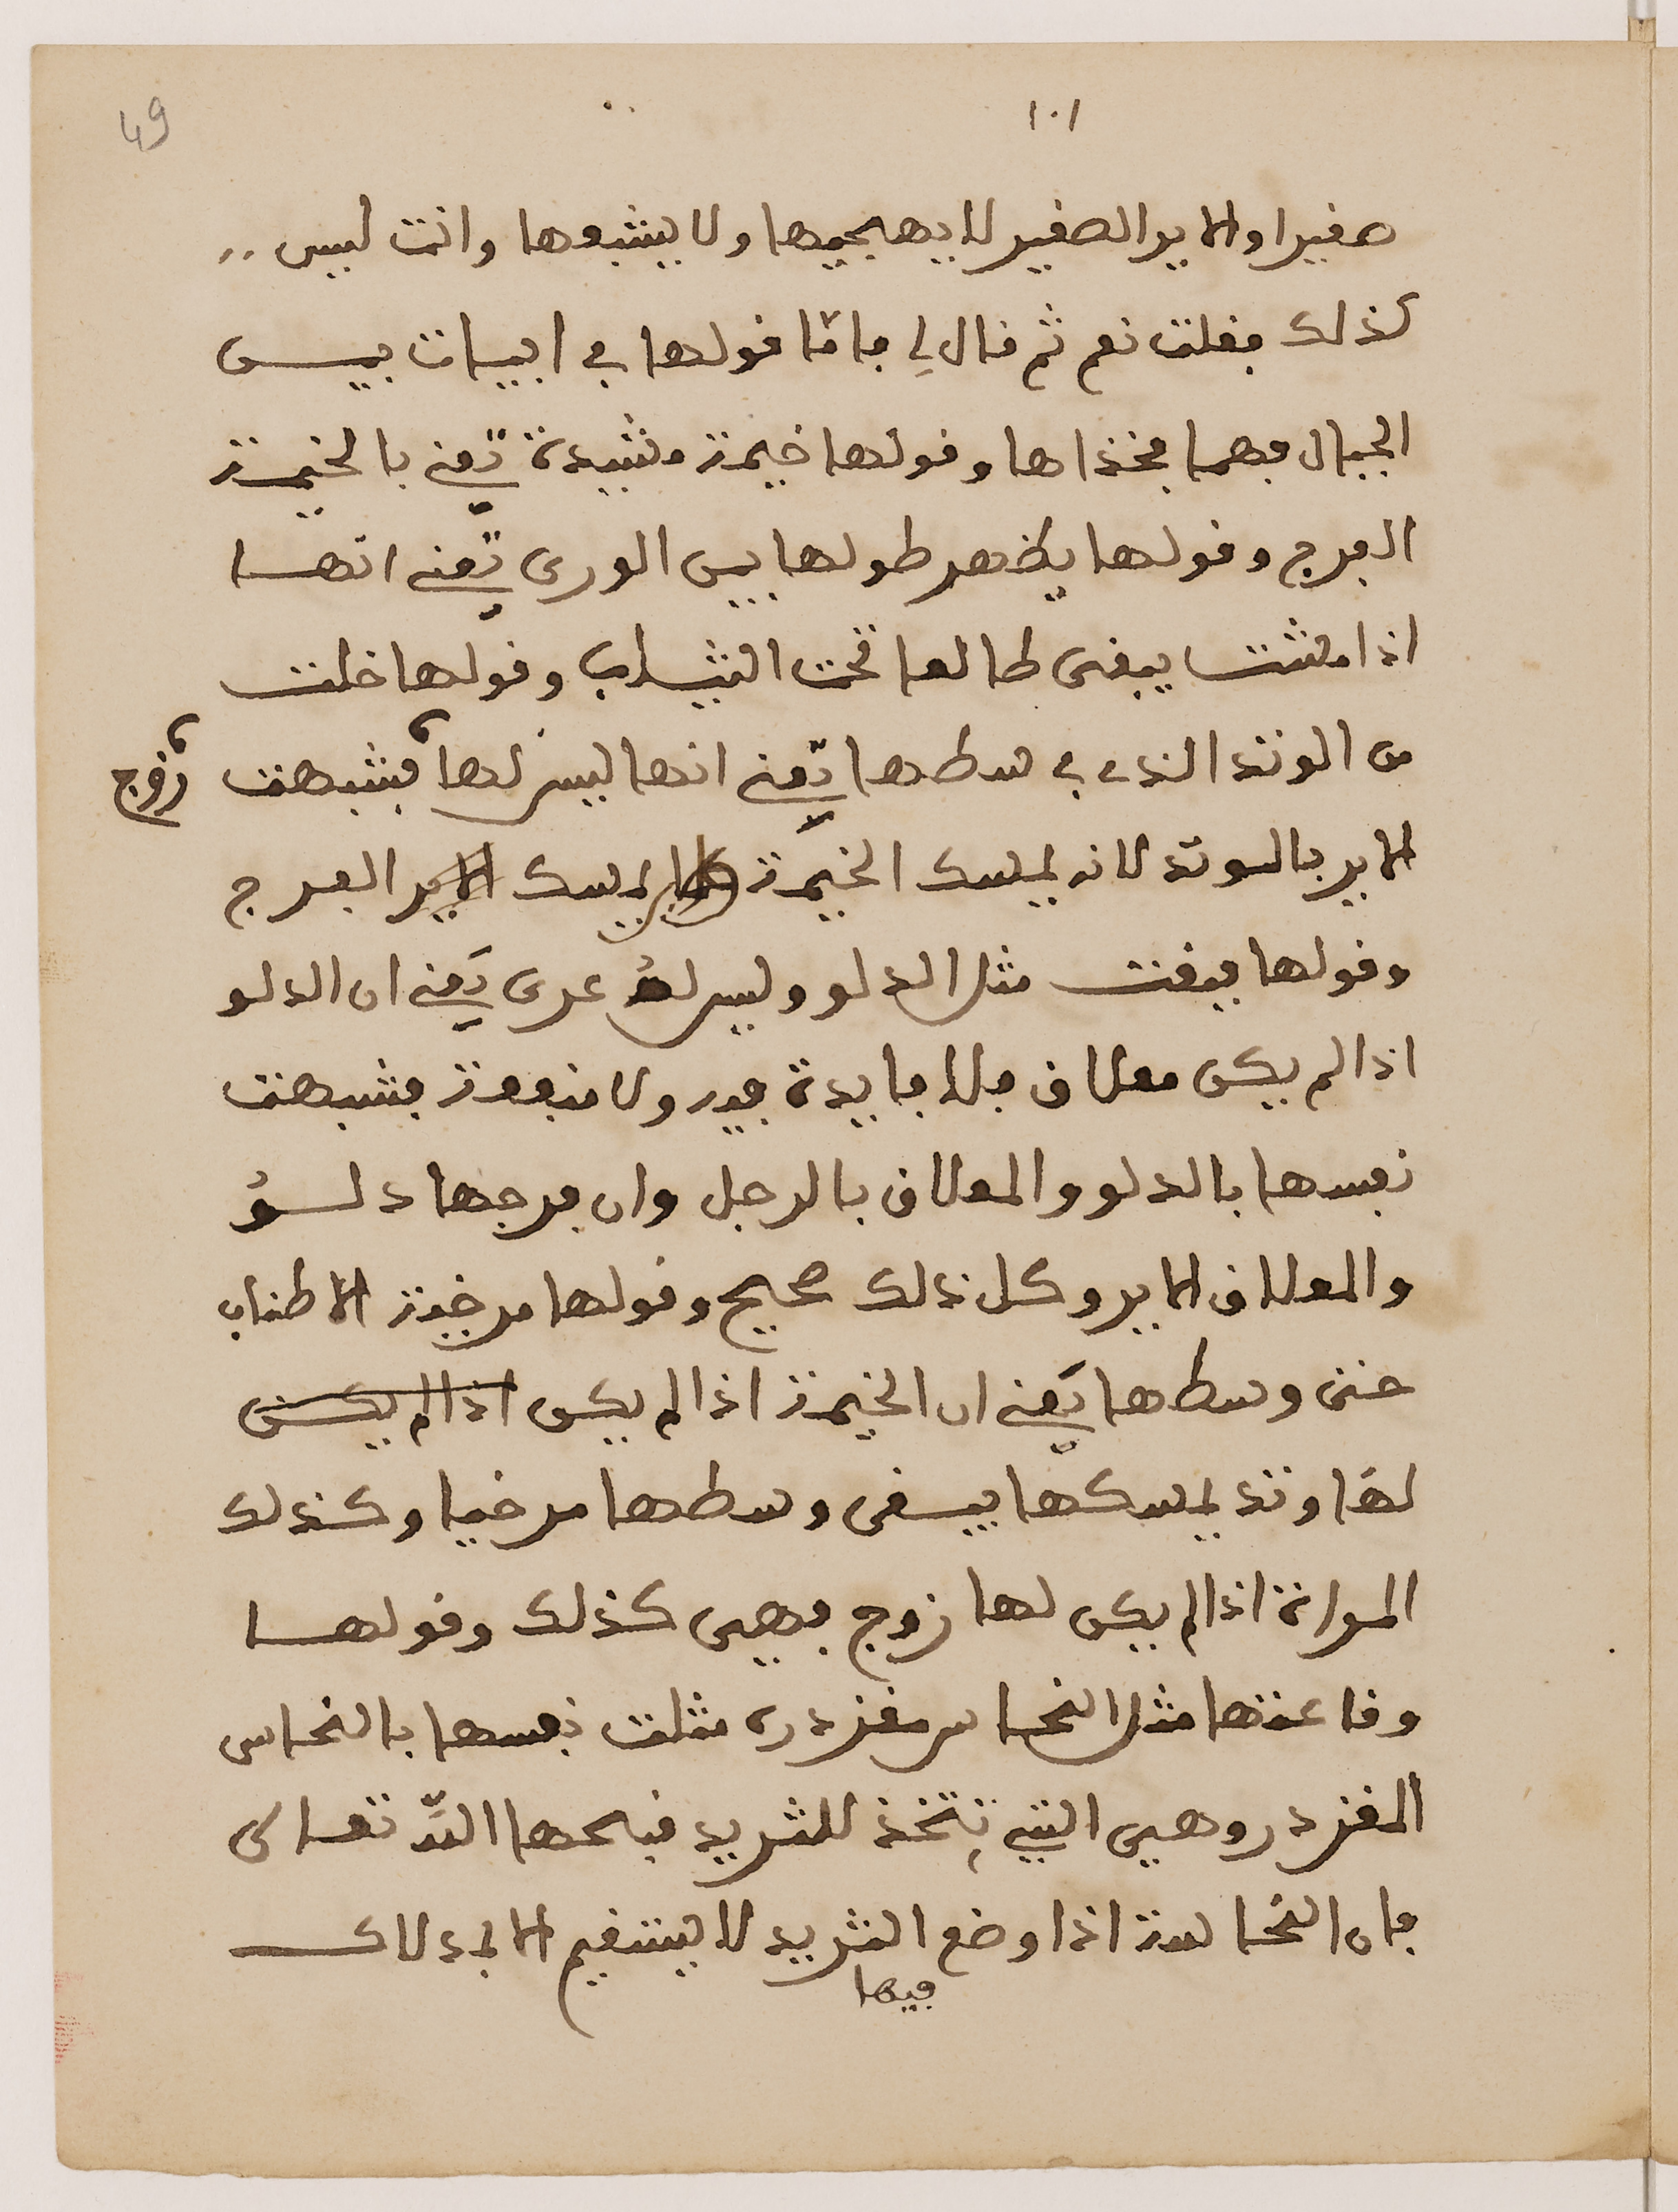 49
١٠١
صغيرا والاير الصغير لا يهجيها ولا يشبعها وانت ليس
كذلك فقلت نعم ثم قال لي فامّا قولها في ابيات بيس
الجبال فهما فخذاها وقولها خيمة مشيدة تعني بالخيمة
الفرج وقولها يظهر طولها بين الورى تعني انها
اذا مشت يبقى طالعا تحت الثياب وقولها خلت
من الوتد الذي في وسطها تعني انها ليس لها زوج فشبهت
الاير بالوتد لانه يمسك الخيمة كما يمسك الاير الفرج
وقولها فبقت مثل الدلو وليس له عرى يعني ان الدلو
اذا لم يكن معلاق فلا فايدة فيه ولا منفعة فشبهت
نفسها بالدلو والمعلاق بالرجل وان فرجها دلو
والمعلاق الاير وكل ذلك صحيح وقولها مرخية الاطناب
حتى وسطها يعني ان الخيمة اذا لم يكن اذا لم يكن
لها وتد يمسكها يبقى وسطها مرخيا وكذلك
المراة اذا لم يكن لها زوج فهي كذلك وقولها
وقاعتها مثل النحاس مقزدرى مثلت نفسها بالنحاس
المقزدر وهي التي تتخذ للثريد قبحها الله تعالى
فان النحاسة اذا وضع فيها الثريد لا يستقيم الا بدلاك